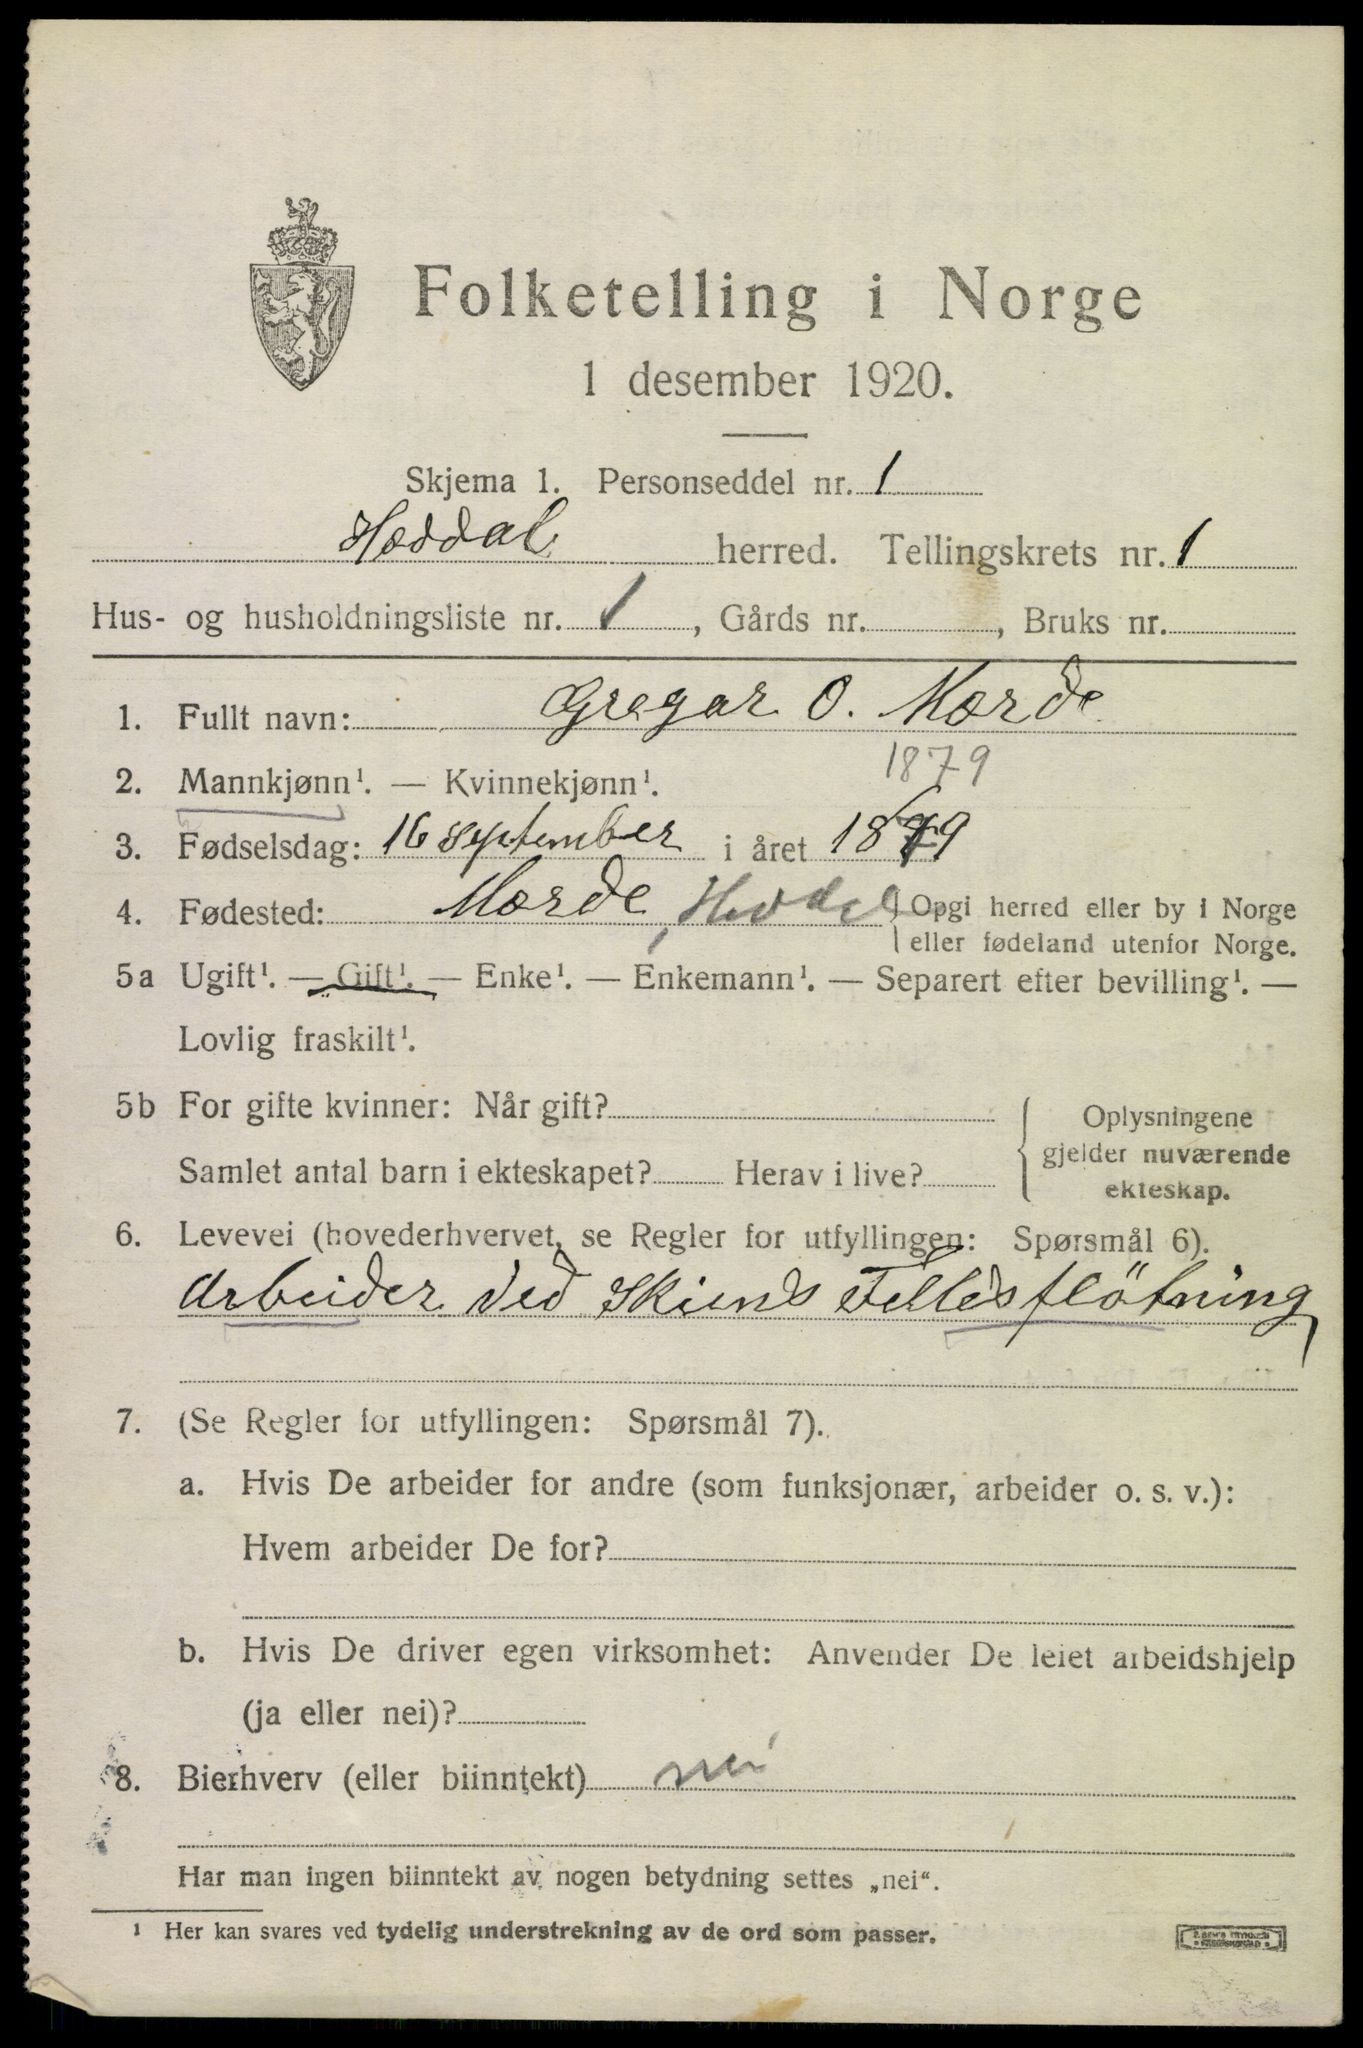 Folketelling i Norge
1 desember 1920.
Skjema 1. Personseddel nr. 1
Hæddal herred. Tellingskrets nr. 1
Hus- og husholdningsliste nr. 1, Gårds nr. , Bruks nr.
1. Fullt navn: Gregar O. Mærde
1879
2. Mannkjønn¹. — Kvinnekjønn¹.
3. Fødselsdag: 16 september i året 1879
4. Fødested: Mærde, Heddal { Opgi herred eller by i Norge
eller fødeland utenfor Norge.
5a Ugift¹. — Gift¹. — Enke¹. — Enkemann¹. — Separert efter bevilling¹. —
Lovlig fraskilt¹.
5b For gifte kvinner: Når gift?
Samlet antal barn i ekteskapet? Herav i live?
{ Oplysningene
gjelder nuværende
ekteskap.
6. Levevei (hovederhvervet, se Regler for utfyllingen: Spørsmål 6).
Arbeider ved Skiens Fellesflötning
7. (Se Regler for utfyllingen: Spørsmål 7).
a. Hvis De arbeider for andre (som funksjonær, arbeider o. s. v.):
Hvem arbeider De for?
b. Hvis De driver egen virksomhet: Anvender De leiet arbeidshjelp
(ja eller nei)?
8. Bierhverv (eller biinntekt) nei
Har man ingen biinntekt av nogen betydning settes „nei“.
¹ Her kan svares ved tydelig understrekning av de ord som passer.